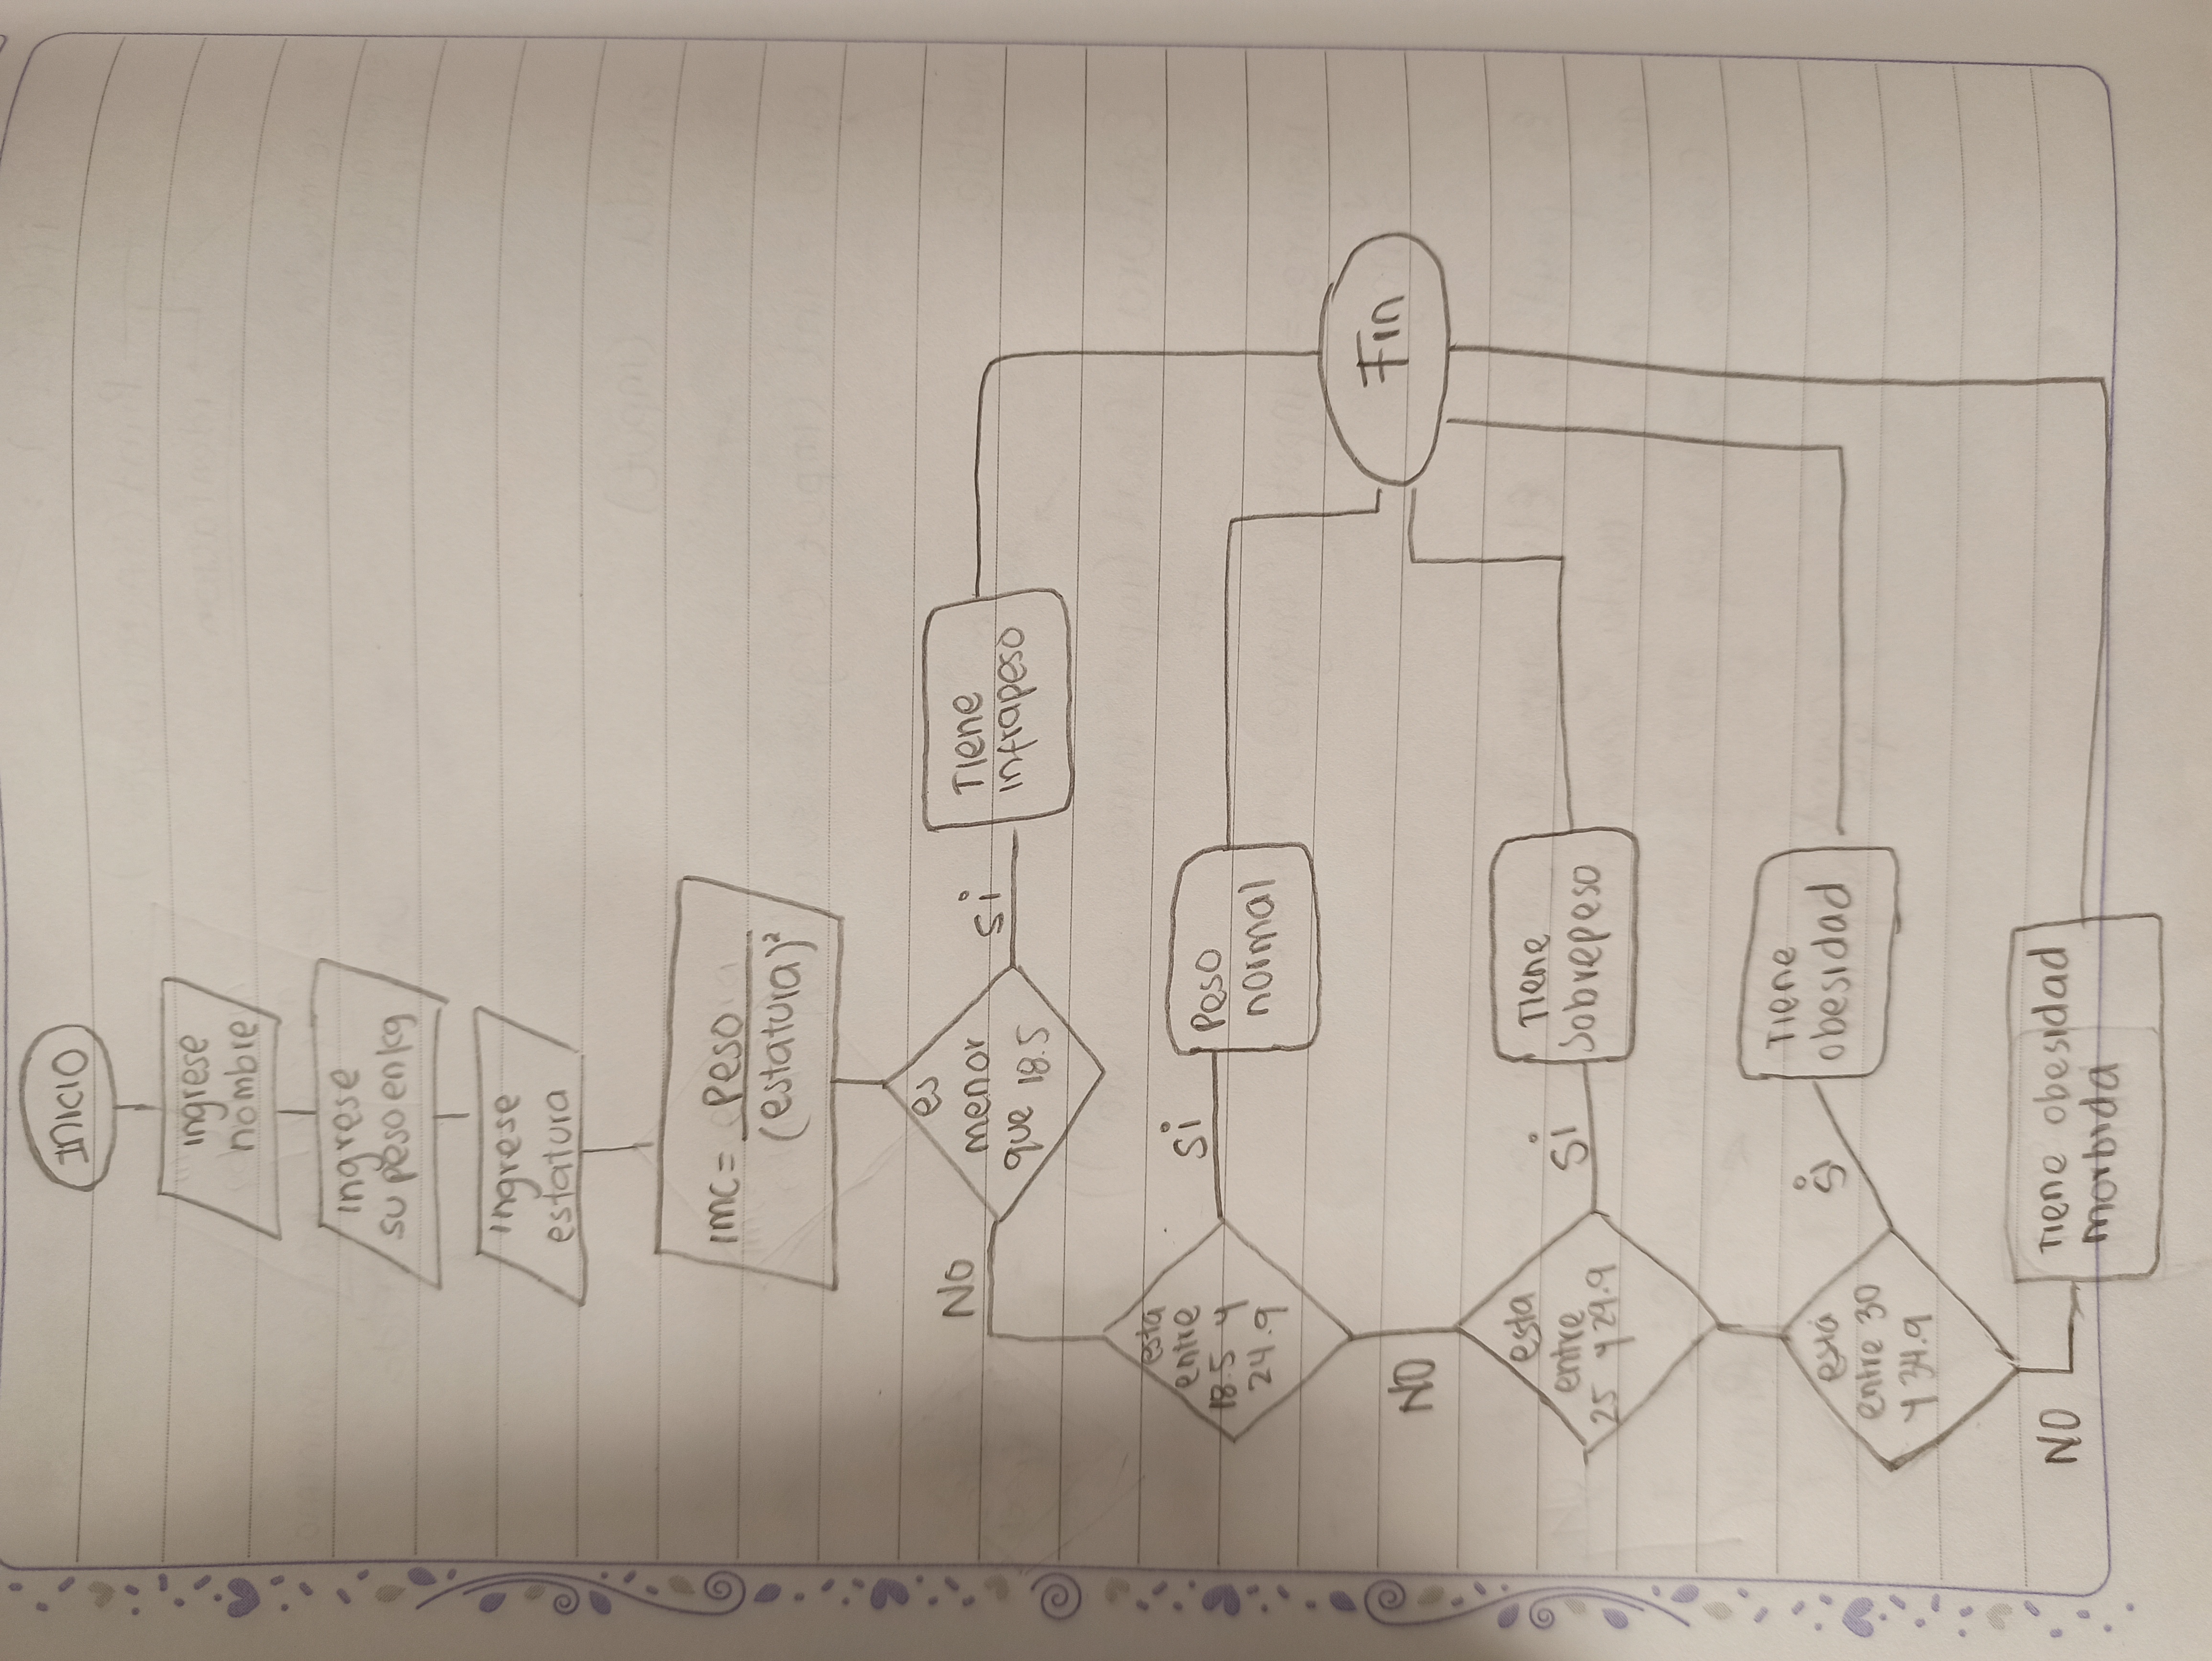 INICIO
ingrese
nombre
ingrese
su peso en kg
ingrese
estatura
imc = peso
(estatura)²
es
menor
que 18.5
NO
si
Tiene
infrapeso
esta
entre
18.5 y
24.9
si
Peso
normal
Fin
NO
esta
entre
25 y 29.9
si
Tiene
Sobrepeso
está
entre 30
y 34.9
si
Tiene
obesidad
NO
Tiene obesidad
morbida